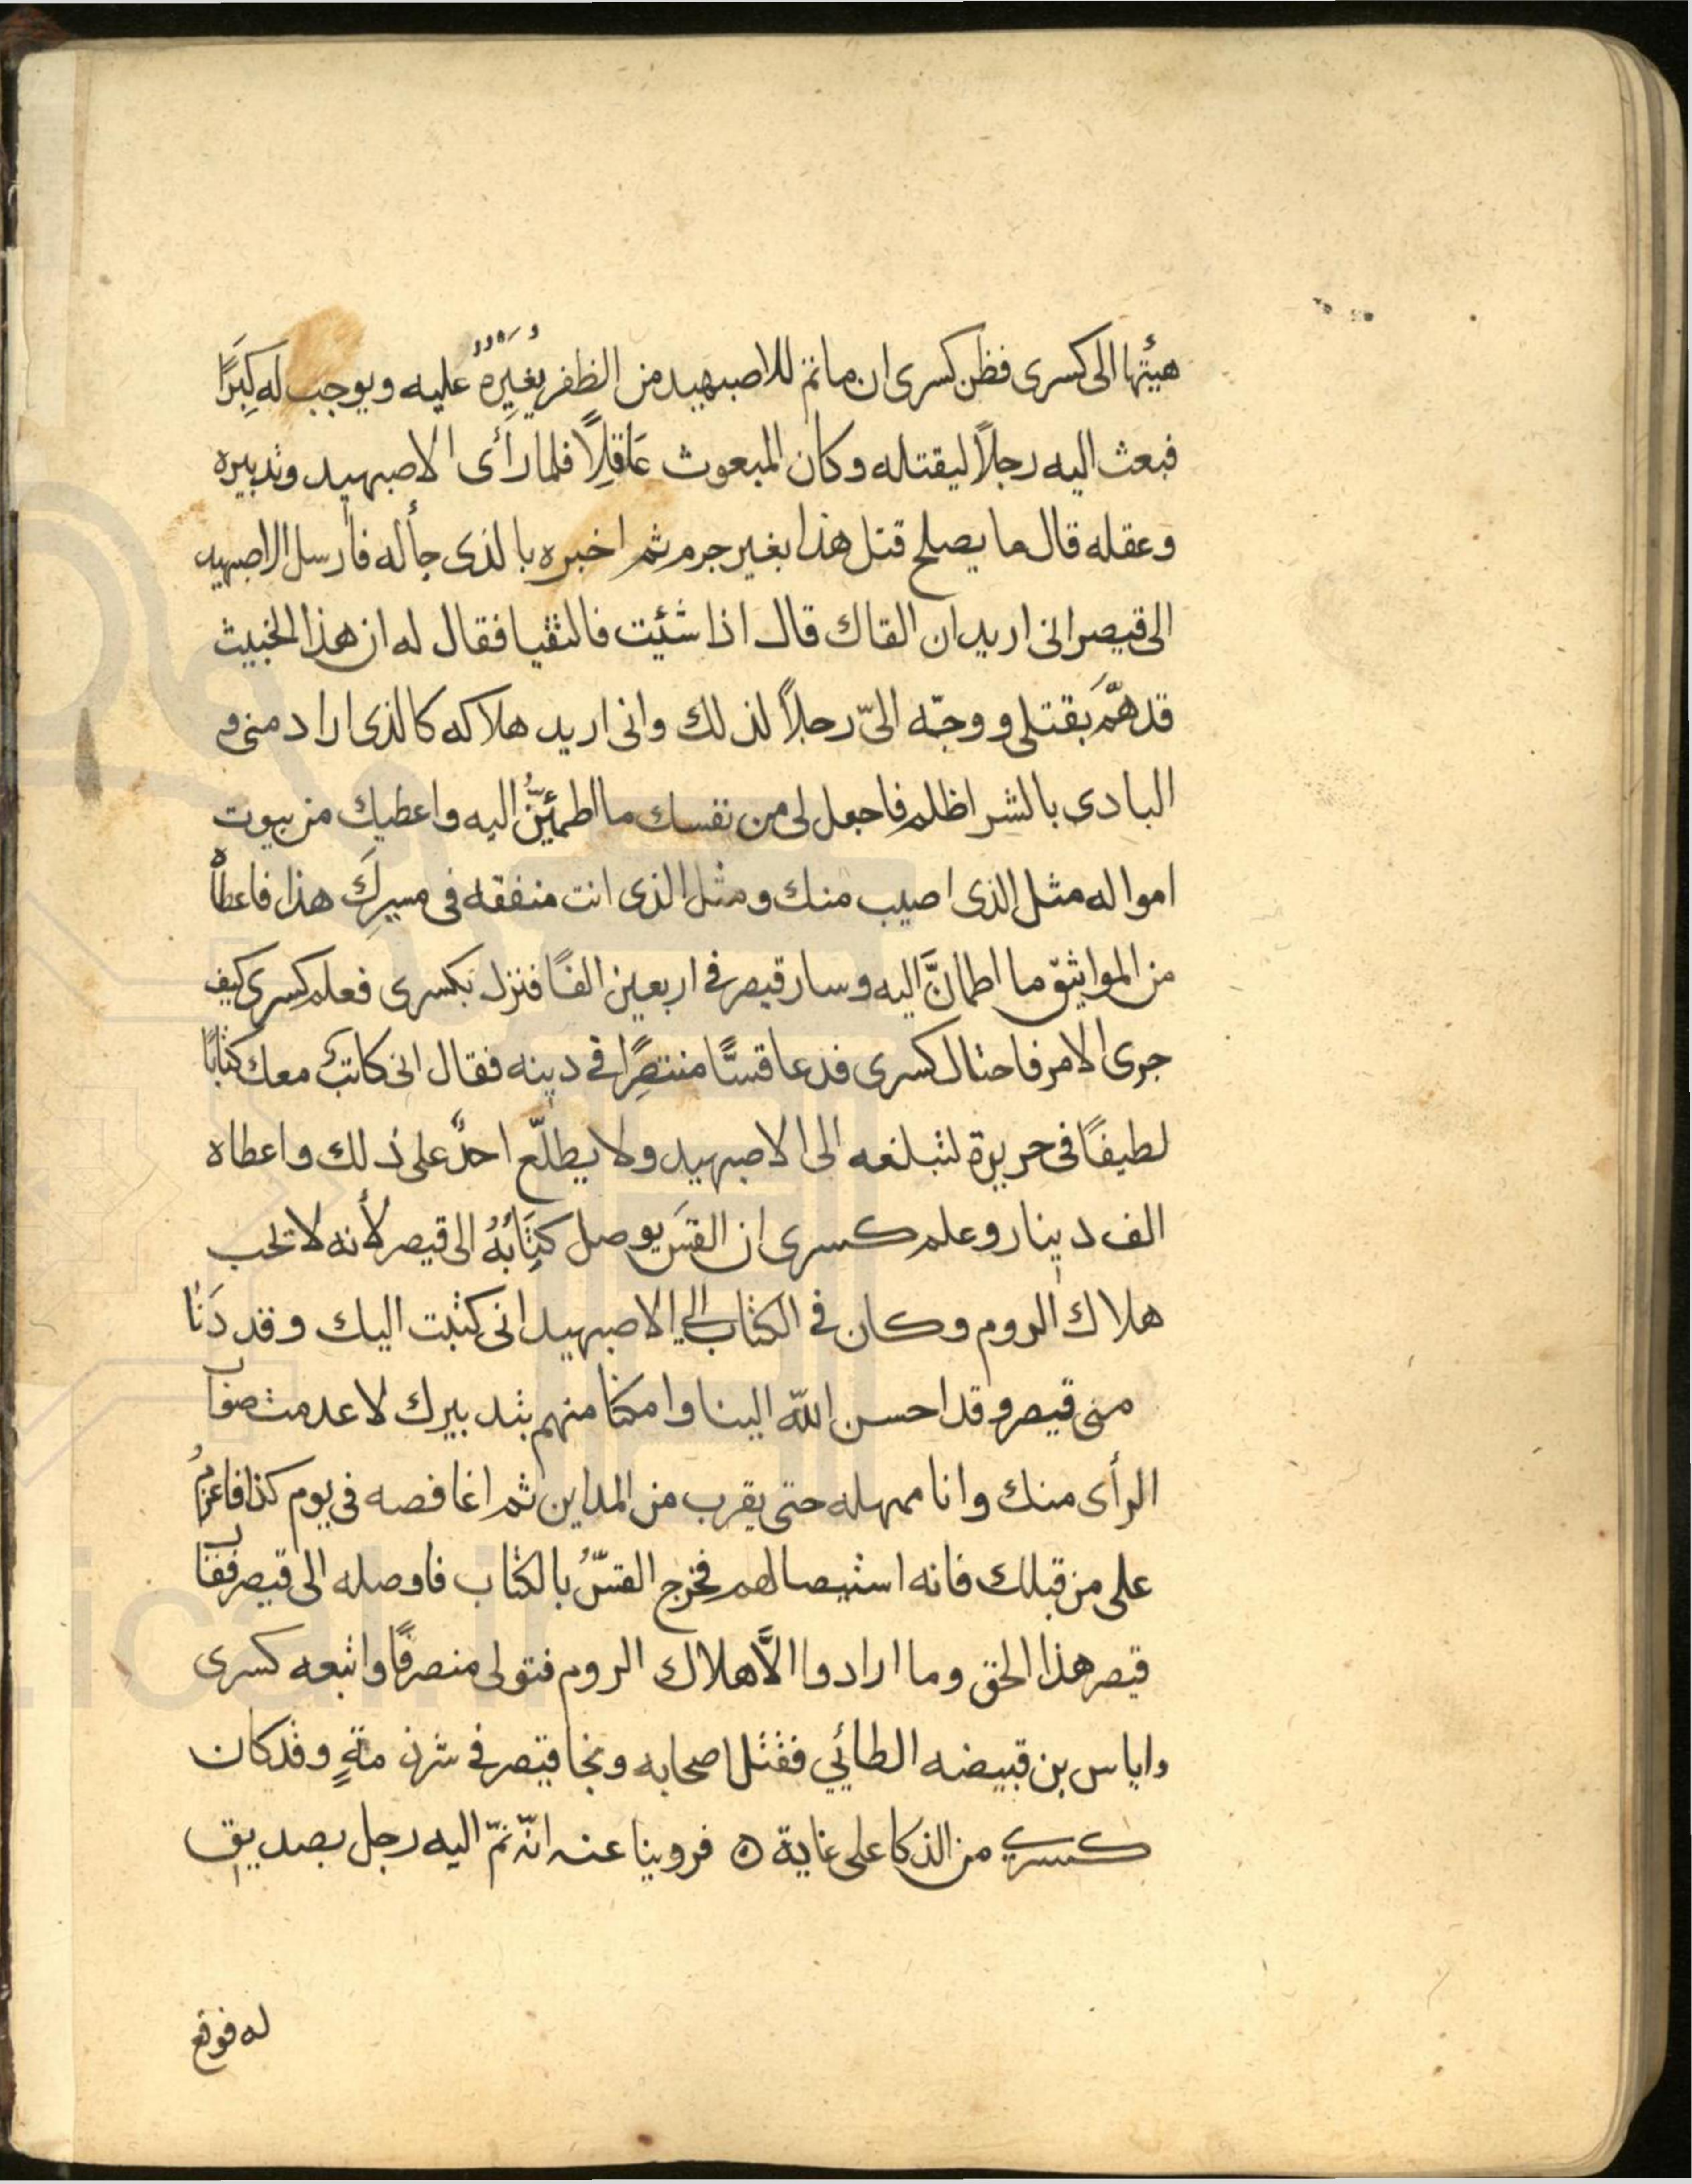 هيئتها الى كسرى فظن كسرى ان ما تم للاصبهيد من الظفر يغيره عليه ويوجب له كِبَرًا
فبعث اليه رجلاً ليقتله وكان المبعوث عَاقِلاً فلما رأى الاصبهيد وتدبيره
وعقله قال ما يصلح قتل هذا بغير جرم ثم اخبره بالذى جأ له فأرسل الاصبهيد
الى قيصر انى اريد ان القاك قال اذا شئت فالتقيا فقال له ان هذا الخبيث
قد همَّ بقتلى ووجّه الىّ رجلاً لذلك وانى اريد هلاكه كالذى اراد منى و
البادى بالشر اظلم فاجعل لى من نفسك ما اطمئِنُّ اليه واعطيك من بيوت
امواله مثل الذى اصيب منك ومثل الذى انت منفقه فى مسيرِكَ هذا فاعطاه
من المواثيق ما اطمانَّ اليه وسار قيصر فى اربعين الفًا فنزل بكسرى فعلم كسرى كيف
جرى الامر فاحتال كسرى فدعا قسًّا منتصِرًا فى دينه فقال انى كاتبٌ معك كتابًا
لطيفًا فى حريرة لتبلغه الى الاصبهيد ولا يطلّع احدٌ على ذلك واعطاه
الف دينار وعلم كسرى ان القسَ يوصل كِتَابَهُ الى قيصر لأنه لا تحب
هلاك الروم وكان فى الكتاب الى الاصبهيد انى كتبت اليك وقد دَنَا
منى قيصر وقد احسن اللّه الينا وامكنا منهم بتدبيرك لا عدمت صواب
الرأى منك وانا ممهله حتى يقرب من المداين ثم اغافصه فى يوم كذا فاعزمُ
على من قبلك فانه استيصالهم فخرج القسّ بالكتاب فاوصله الى قيصر فقال
قيصر هذا الحق وما ارادوا الاَّ هلاك الروم فتولى منصرفًا واتبعه كسرى
واياس بن قبيضه الطائي فقتل اصحابه ونجا قيصر فى شرذمةٍ وقد كان
كسرى من الذكا على غاية ه فروينا عنه انّه نمّ اليه رجل بصديق
له فوقع